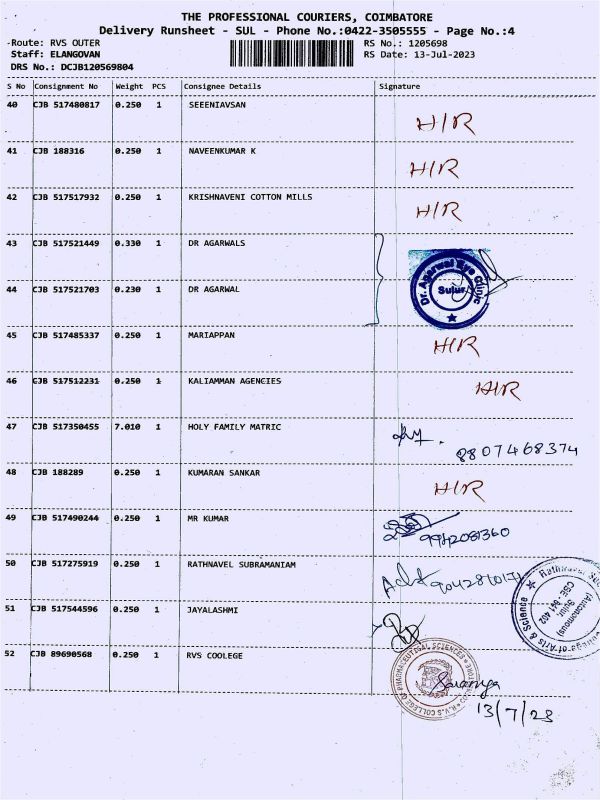 THE PROFESSIONAL COURIERS, COIMBATORE
Delivery Runsheet - SUL - Phone No.:0422-3505555 - Page No.:4
-Route: RVS OUTER RS No.: 1205698
Staff: ELANGOVAN RS Date: 13-Jul-2023
DRS No.: DCJB120569804
S No Consignment No Weight PCS Consignee Details Signature
40 CJB 517480817 0.250 1 SEEENIAVSAN H/R
41 CJB 188316 0.250 1 NAVEENKUMAR K H/R
42 CJB 517517932 0.250 1 KRISHNAVENI COTTON MILLS H/R
43 CJB 517521449 0.330 1 DR AGARWALS
Dr. Agarwal Eye Clinic
Sulur
44 CJB 517521703 0.230 1 DR AGARWAL
45 CJB 517485337 0.250 1 MARIAPPAN H/R
46 CJB 517512231 0.250 1 KALIAMMAN AGENCIES H/R
47 CJB 517350455 7.010 1 HOLY FAMILY MATRIC 8807468374
48 CJB 188289 0.250 1 KUMARAN SANKAR H/R
49 CJB 517490244 0.250 1 MR KUMAR 9942081360
50 CJB 517275919 0.250 1 RATHNAVEL SUBRAMANIAM
Rathnavel
College of Arts & Science
(Autonomous)
Sulur,
CBE - 641 402
51 CJB 517544596 0.250 1 JAYALASHMI
52 CJB 89690568 0.250 1 RVS COOLEGE
R.V.S COLLEGE OF PHARMACEUTICAL SCIENCES
Saranya
13/7/23